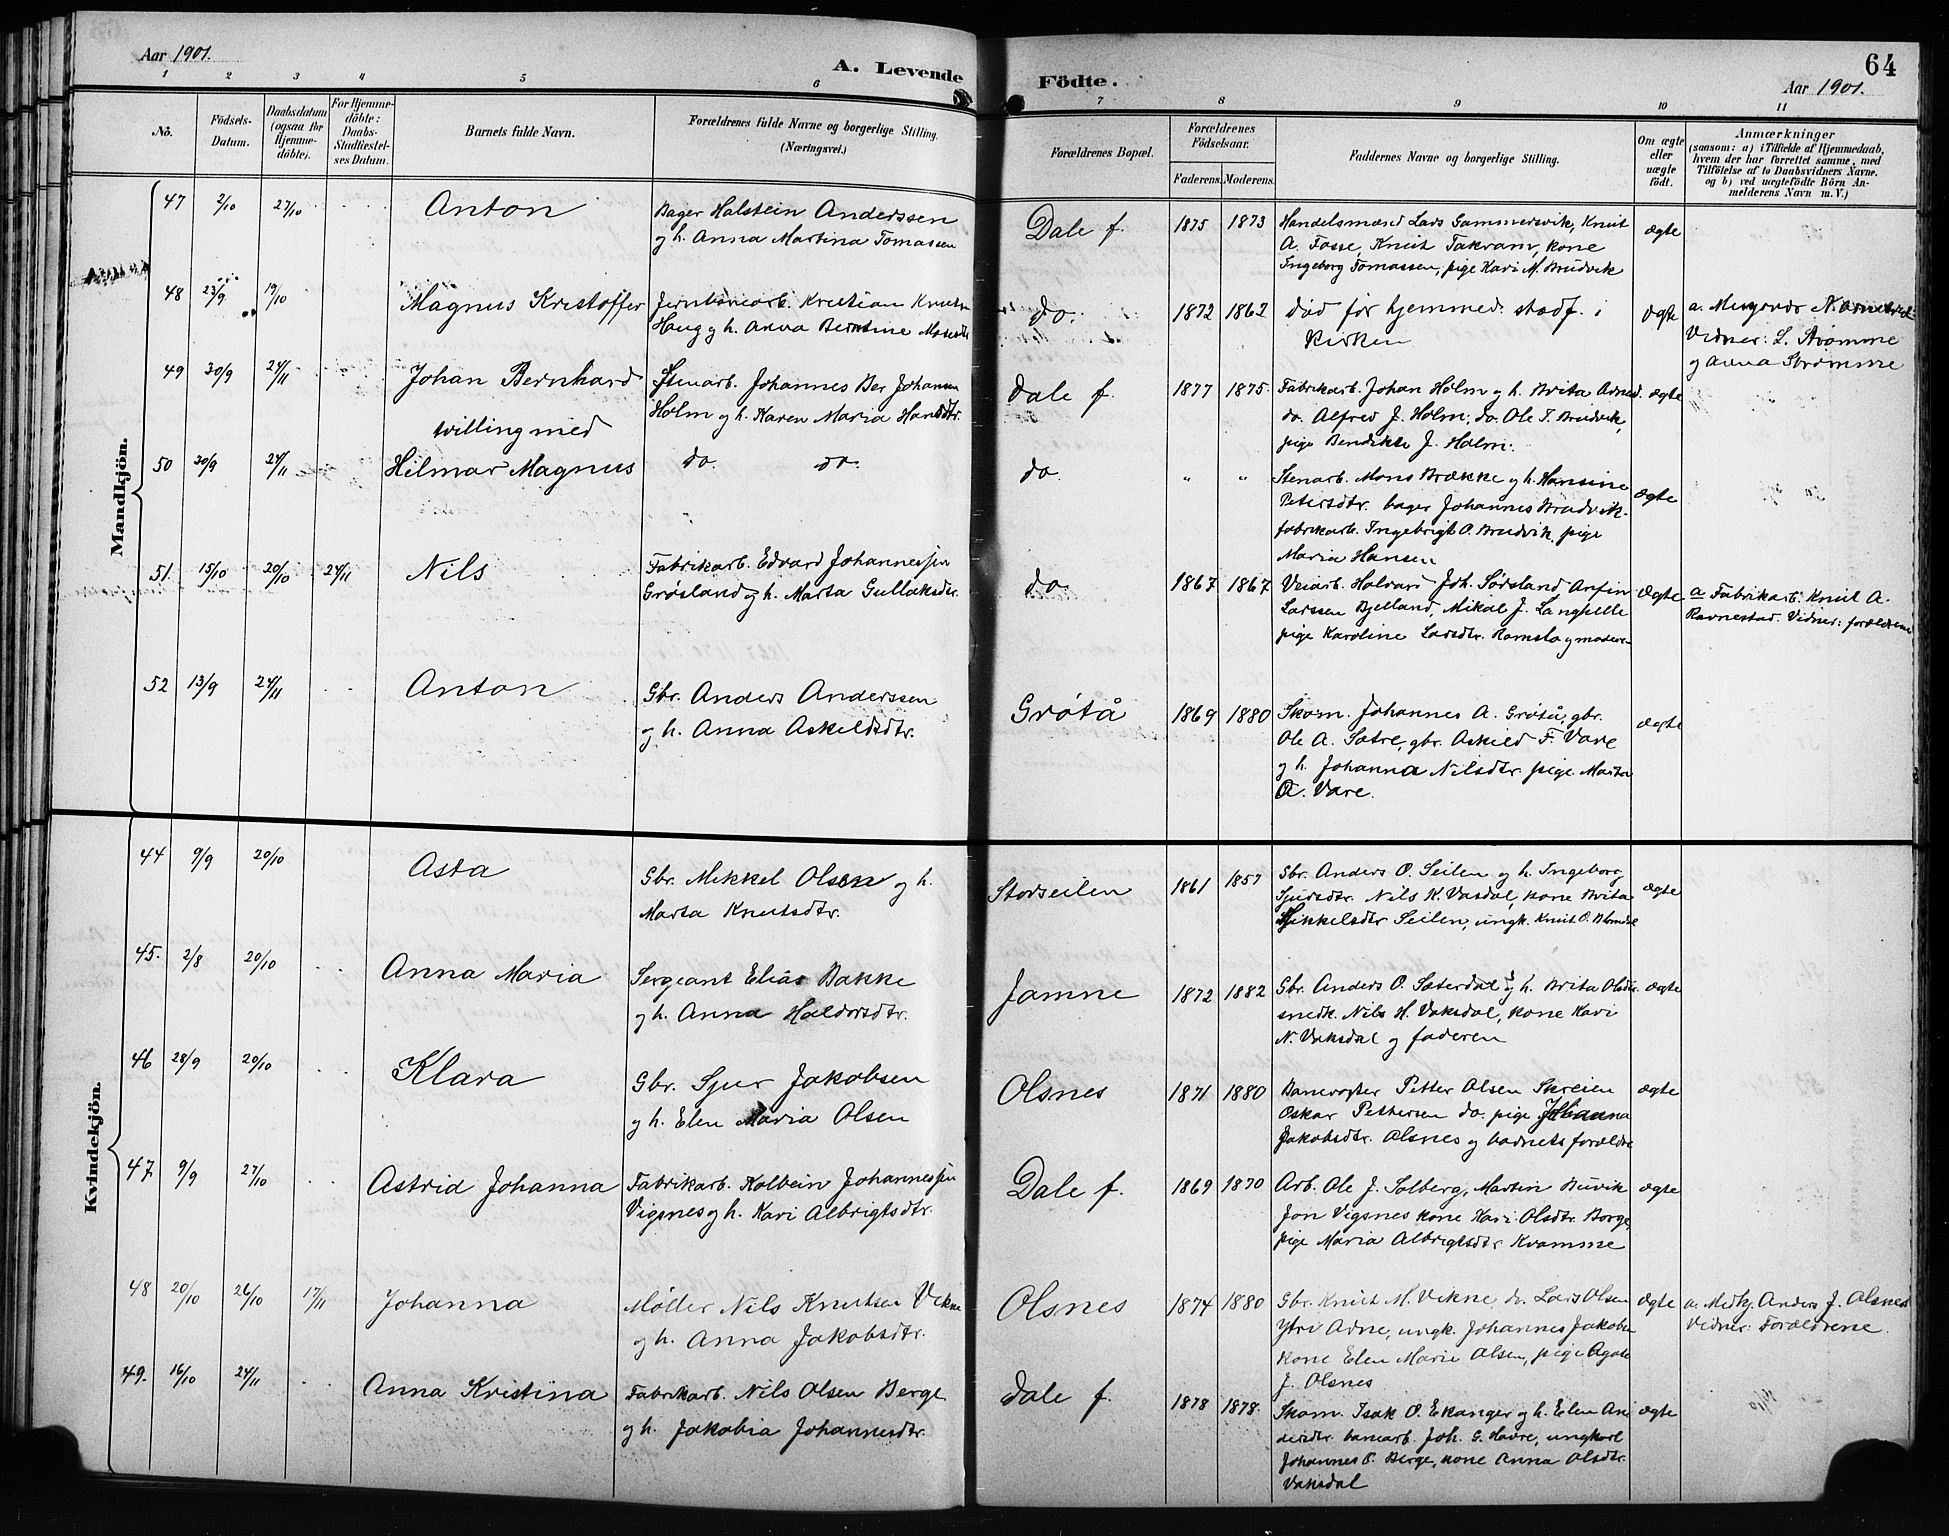 Aar 1901.
A. Levende Födte.
64
Aar 1901.
1 2 3 4 5 6 7 8 9 10 11
No.
Födsels-
Datum.
Daabsdatum
(ogsaa for
Hjemme-
döbte).
For Hjemme-
döbte:
Daabs-
Stadfæstel-
ses Datum.
Barnets fulde Navn.
Forældrenes fulde Navne og borgerlige Stilling.
(Næringsvei.)
Forældrenes Bopæl.
Forældrenes
Födselsaar.
Faderens. Moderens.
Faddernes Navne og borgerlige Stilling.
Om ægte
eller
uægte
födt.
Anmærkninger
(saasom: a) i Tilfælde af Hjemmedaab,
hvem der har forrettet samme, med
Tilföielse af to Daabsvidners Navne.
og b) ved uægtefödte Börn An-
melderens Navn m. V.)
Mandkjön.
47 2/10 27/10 Anton
Bager Halstein Anderssen
og h. Anna Martina Tomassen
Dale f. 1875 1873
Handelsmænd Lars Gammersvik, Knut
A. Fosse, Knut Takvam, kone
Ingeborg Tomassen, pige Kari M. Brudvik
ægte
48 23/9 19/10 Magnus Kristoffer
Jernbanearb. Kristian Knutsen
Haug og h. Anna Berntine
do. 1872 1862
død før hjemmed. stadf. i
Kirken
ægte
a.
Vidner: L. Strømme
og Anna Strømme
49 30/9 24/11 Johan Bernhard
tvilling med
Stenarb. Johannes Ber Johansen
Holm og h. Karen Maria Hansdtr.
Dale f. 1877 1875
Fabrikarb. Johan Holm og h. Brita
do. Alfred J. Holm, do. Ole T. Brudvik,
pige Bendikte J. Holm.
ægte
50 30/9 24/11 Hilmar Magnus
do. do.
do " "
Stenarb. Mons Brække og h. Hansine
Petersdtr. bager Johannes Brudvik
fabrikarb. Ingebrigt O. Brudvik, pige
Maria Hansen
ægte
51. 15/10 20/10 24/11 Nils
Fabrikarb. Edvard Johannessen
Grøsland og h. Marta Gullaksdtr.
do 1867 1867
Veiarb. Halvard Joh. Sørsland, Arfin
Larssen Bjelland, Mikal J. Langhelle
pige Karoline Larsdtr. Ramsla og modere-
ægte
a Fabrikarb. Knut A.
Ravnestad. Vidner: forældrene
52 13/9 24/11 Anton
Gbr. Anders Anderssen
og h. Anna Askeldsdtr.
Grøtå 1869 1880
Skom. Johannes A. Grøtå, gbr.
Ole A. Sætre, gbr. Askild F. Vare
og h. Johanna Nilsdtr. pige Marta
A. Vare.
ægte
Kvindekjön.
44 9/9 20/10 Asta
Gbr. Mikkel Olsen og h.
Marta Knutsdtr.
Storseilen 1861 1857
Gbr. Anders O. Seilen og h. Ingeborg
Sjursdtr. Nils K. Vasdal, kone Brita
Mikkelsdtr Seilen, ungk. Knut O.
ægte
45. 2/8 20/10 Anna Maria
Sergeant Elias Bakke
og h. Anna Haldorsdtr.
Jamne 1872 1882
Gbr. Anders O. Sæterdal og h. Brita Olsdtr.
snedk. Nils H. Vaksdal, kone Kari
N. Vaksdal og faderen
ægte
46 28/9 20/10 Klara
Gbr. Sjur Jakobsen
og h. Elen Maria Olsen
Olsnes 1871 1880
Banevogter Petter Olsen Skreien
Oskar Pettersen do. pige Johanna
Jakobsdtr. Olsnes og barnets forældre
ægte
47. 9/9 27/10 Astrid Johanna
Fabrikarb. Kolbein Johannessen
Vigsnes og h. Kari Albrigtsdtr.
Dale f. 1869 1870
Arb. Ole J. Solberg, Martin Buvik
Jon Vigsnes kone Kari Olsdtr. Borge
pige Maria Albrigtsdtr Kvamme
ægte
48 20/10 26/10 17/11 Johanna
Møller Nils Knutsen Vekne
og h. Anna Jakobsdtr.
Olsnes 1874 1880
Gbr. Knut M. Vekne, do. Lars Olsen
Ytri Arne, ungk. Johannes Jakobs
kone Elen Marie Olsen, pige Agate
J. Olsnes
ægte
a. Medhj. Anders J. Olsnes
Vidner: Forældrene.
49. 16/10 24/11 Anna Kristina
Fabrikarb. Nils Olsen Berge
og h. Jakobia Johannesdtr.
Dale f. 1878 1878.
Skom. Isak O. Ekanger og h. Elen An-
dersdtr. banearb. Joh. G. Havre, ungkarl
Johannes O. Berge, kone Anna Olsdtr.
Vaksdal
ægte